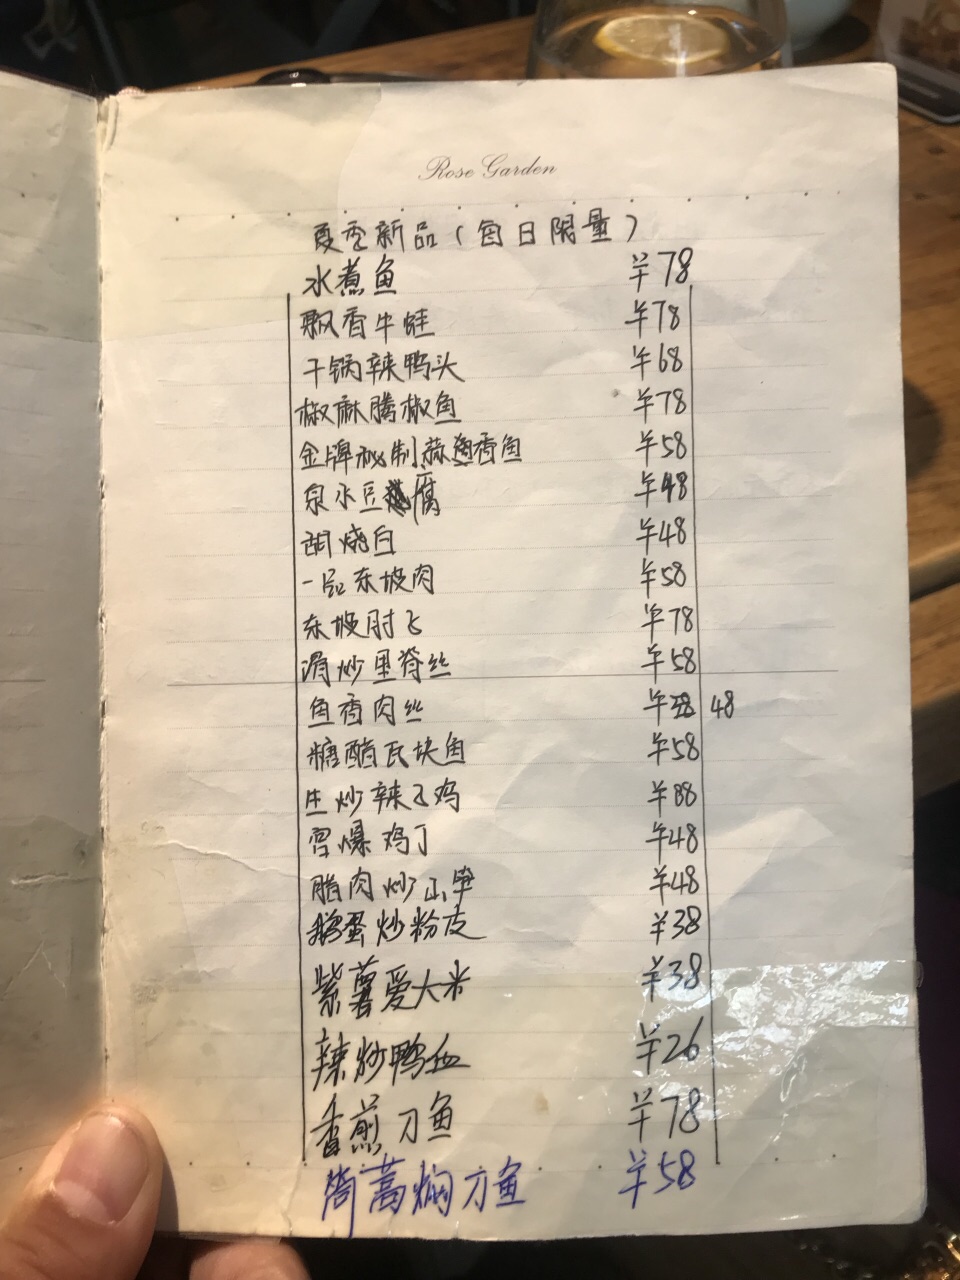 Rose Garden
夏季新品(每日限量)
水煮鱼 ¥78
飘香牛蛙 ¥78
干锅辣鸭头 ¥68
椒麻腾椒鱼 ¥78
金牌秘制蒜香鱼 ¥58
泉水豆腐 ¥48
甜烧白 ¥48
一品东坡肉 ¥58
东坡肘飞 ¥78
滑炒里脊丝 ¥58
鱼香肉丝 ¥38 48
糖醋瓦块鱼 ¥58
生炒辣飞鸡 ¥88
宫爆鸡丁 ¥48
腊肉炒山笋 ¥48
鹅蛋炒粉皮 ¥38
紫薯爱大米 ¥38
辣炒鸭血 ¥26
香煎刀鱼 ¥78
蒿焖刀鱼 ¥58